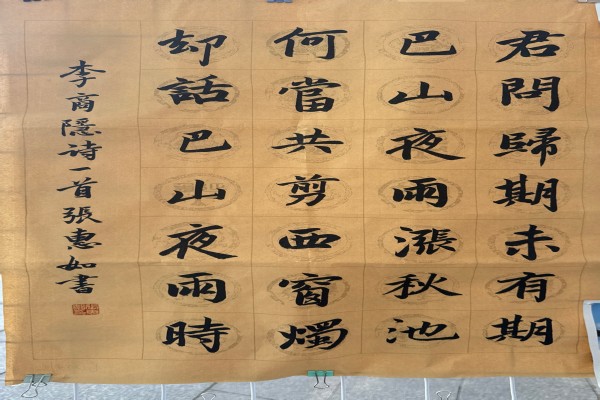 君問歸期未有期
巴山夜雨漲秋池
何當共剪西窗燭
却話巴山夜雨時
李商隱詩一首張惠如書